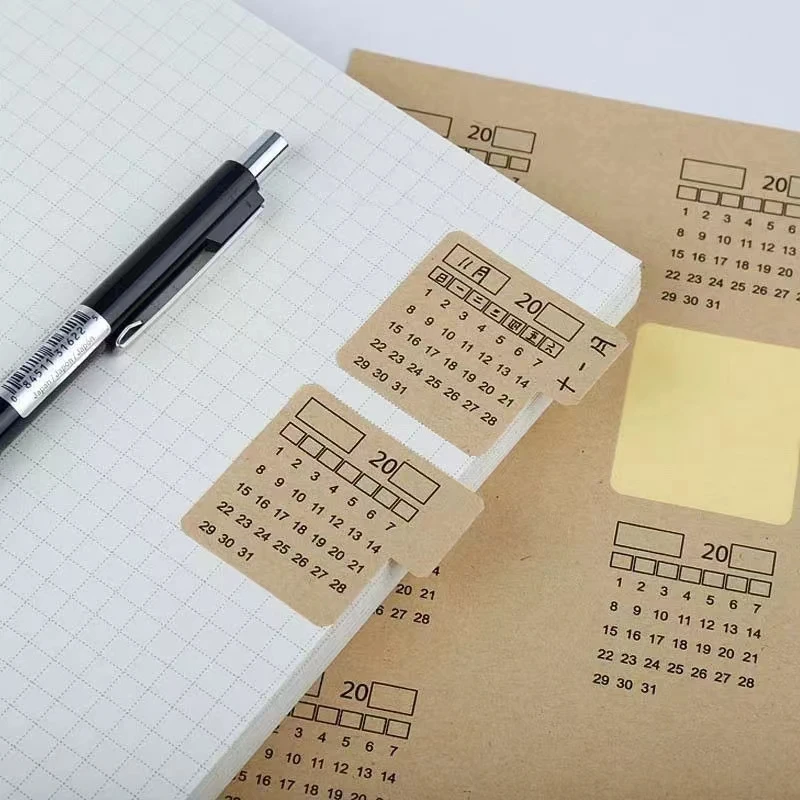 20
20
1 2 3 4 5 6
8 9 10 11 12 13
15 16 17 18 19 20
22 23 24 25 26 27
29 30 31
0 84511 31622 5
11月 20
日 一 二 三 四 五 六
1 2 3 4 5 6 7
8 9 10 11 12 13 14
15 16 17 18 19 20 21
22 23 24 25 26 27 28
29 30 31
十一月
20
1 2 3 4 5 6 7
8 9 10 11 12 13 14
15 16 17 18 19 20 21
22 23 24 25 26 27 28
29 30 31
20 21
27 28
20
1 2 3 4 5 6 7
8 9 10 11 12 13 14
15 16 17 18 19 20 21
22 23 24 25 26 27 28
29 30 31
20
3 4 5 6 7
10 11 12 13 14
16 17 18 19 20 21